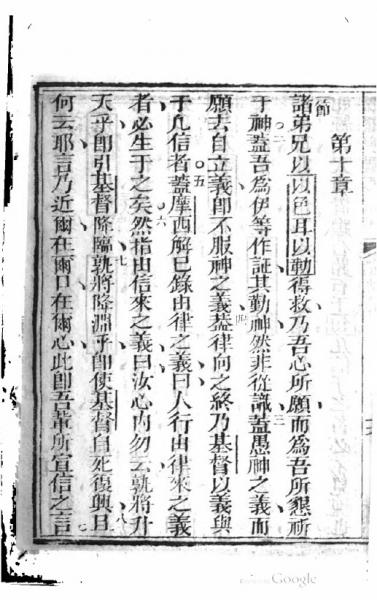 第十章
節
諸弟兄以以色耳以勒得救乃吾心所願而為吾所懇祈
于神蓋吾為伊等作証其勤神然非從識蓋愚神之義而
願去自立義即不服神之義蓋律向之終乃基督以義與
于凡信者蓋摩西解已錄由律之義曰人行由律來之義
者必生于之矣然指由信來之義曰汝心內勿云孰將升
天乎即引基督降臨孰將降淵乎即使基督自死復興且
何云耶言乃近爾在爾口在爾心此即吾輩所宣信之言
Google